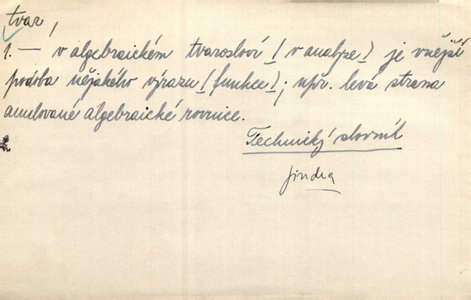 tvar
1. — v algebraickém tvarosloví /v analyse/ je vnější
podoba nějakého výrazu /funkce/; npř. levá strana
anulované algebraické rovnice.
Technický slovník
Jindra